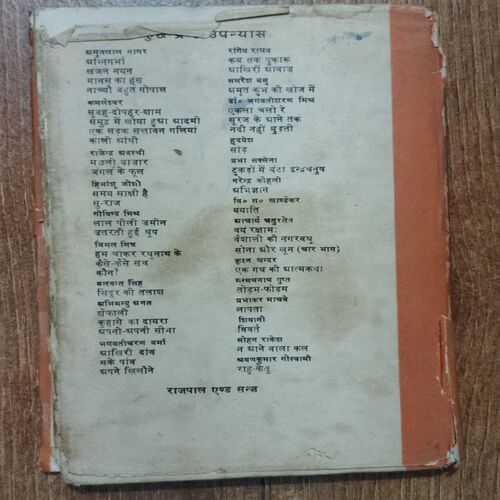 उपन्यास
अमृतलाल नागर
अग्निगर्भा
खंजन नयन
मानस का हंस
नाच्यौ बहुत गोपाल
कमलेश्वर
सुबह-दोपहर-शाम
समुद्र में खोया हुआ आदमी
एक सड़क सत्तावन गलियां
काली आंधी
राजेन्द्र अवस्थी
मछली बाजार
जंगल के फूल
हिमांशु जोशी
समय साक्षी है
सु-राज
गोविन्द मिश्र
लाल पीली जमीन
उतरती हुई धूप
विमल मित्र
हम चाकर रघुनाथ के
कैसे-कैसे सच
कौन?
बलवन्त सिंह
सिंदूर की तलाश
अभिमन्यु अनत
शेफाली
कुहासे का दायरा
अपनी-अपनी सीमा
भगवतीचरण वर्मा
आखिरी दांव
थके पांव
अपने खिलौने
रांगेय राघव
कब तक पुकारूं
आखिरी आवाज
समरेश बसु
अमृत कुंभ की खोज में
डॉ० भगवतीशरण मिश्र
एकला चलो रे
सूरज के आने तक
नदी नहीं मुड़ती
हृदयेश
सांड
प्रभा सक्सेना
टुकड़ों में बंटा इन्द्रधनुष
नरेन्द्र कोहली
अभिज्ञान
वि० स० खाण्डेकर
ययाति
आचार्य चतुरसेन
वयं रक्षामः
वैशाली की नगरवधू
सोना और खून (चार भाग)
कृश्न चन्दर
एक गधे की आत्मकथा
मन्मथनाथ गुप्त
तोड़म-फोड़म
प्रभाकर माचवे
लापता
शिवानी
विवर्त
मोहन राकेश
न आने वाला कल
श्रवणकुमार गोस्वामी
राहु-केतु
राजपाल एण्ड सन्ज़